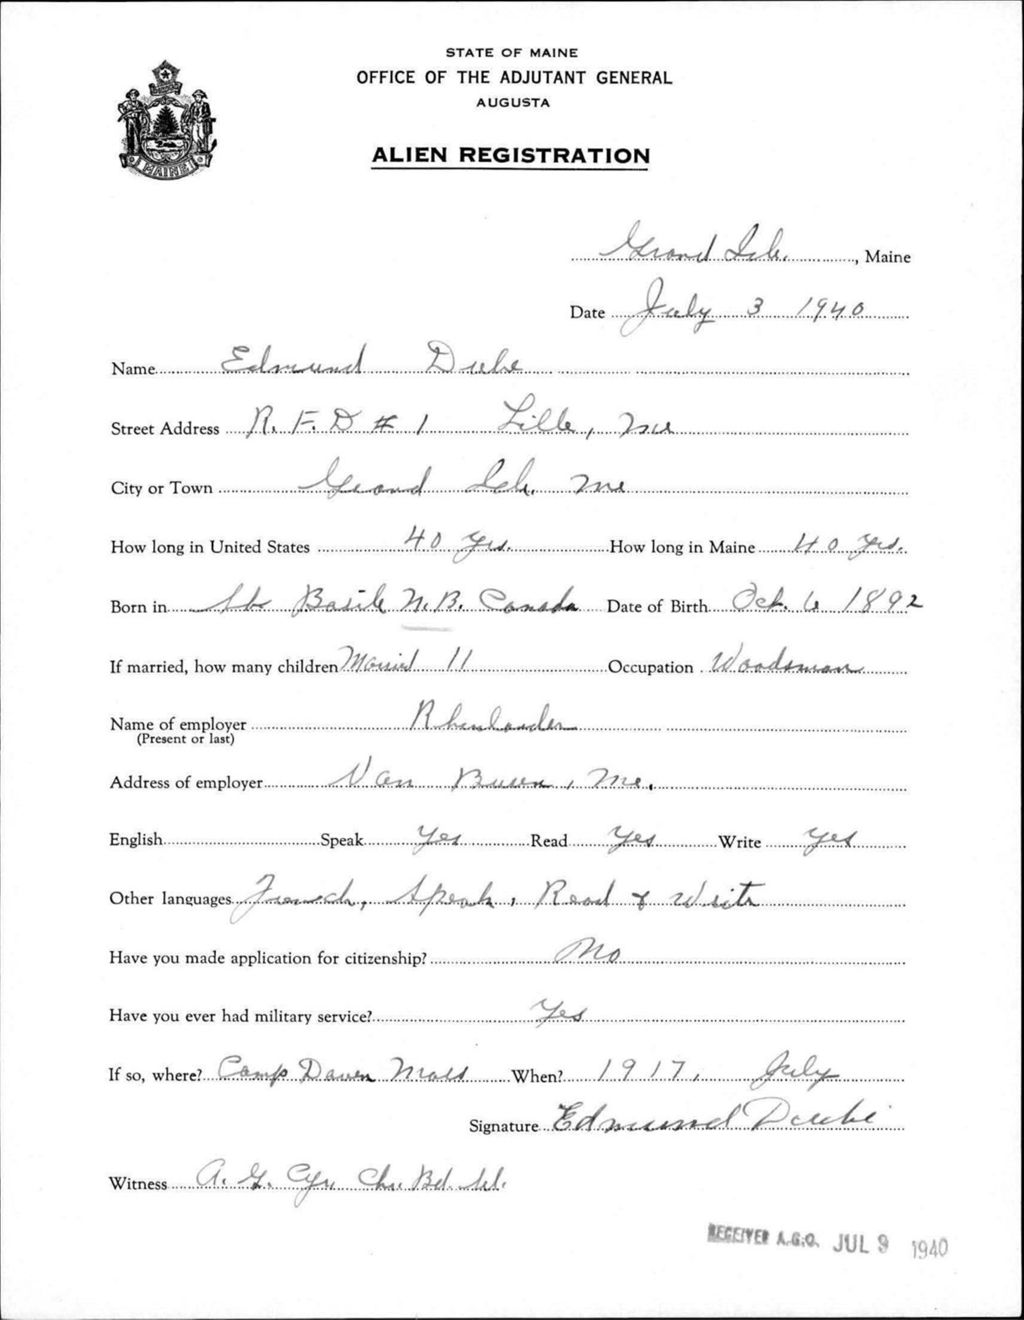 STATE OF MAINE
OFFICE OF THE ADJUTANT GENERAL
AUGUSTA
ALIEN REGISTRATION
MAINE
Grand Isle, Maine
Date July 3 1940
Name Edmund Dube
Street Address R.F.D # 1 Lille, Me
City or Town Grand Isle. Me
How long in United States 40 yrs. How long in Maine 40 yrs.
Born in St Basile N.B. Canada Date of Birth Oct. 6 1892
If married, how many children Married 11 Occupation Woodsman
Name of employer Rhinlander
(Present or last)
Address of employer Van Buren, Me.
English Speak Yes Read Yes Write Yes
Other languages French, Speak, Read & Write
Have you made application for citizenship? No
Have you ever had military service? Yes
If so, where? Camp Daven Mass When? 1917, July
Signature Edmund Dube
Witness A. G. Cyr Ch. Bd. Sel.
RECEIVED A.G.O. JUL 9 1940